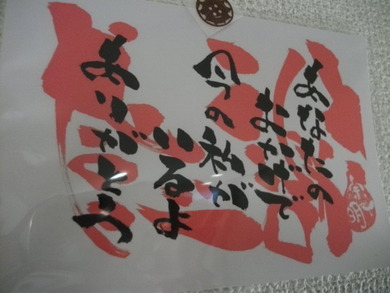 あなたの
おかげで
今の私が
いるよ
ありがとう